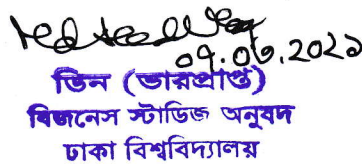 ০৭.০৬.২০২১
ডিন (ভারপ্রাপ্ত)
বিজনেস স্টাডিজ অনুষদ
ঢাকা বিশ্ববিদ্যালয়